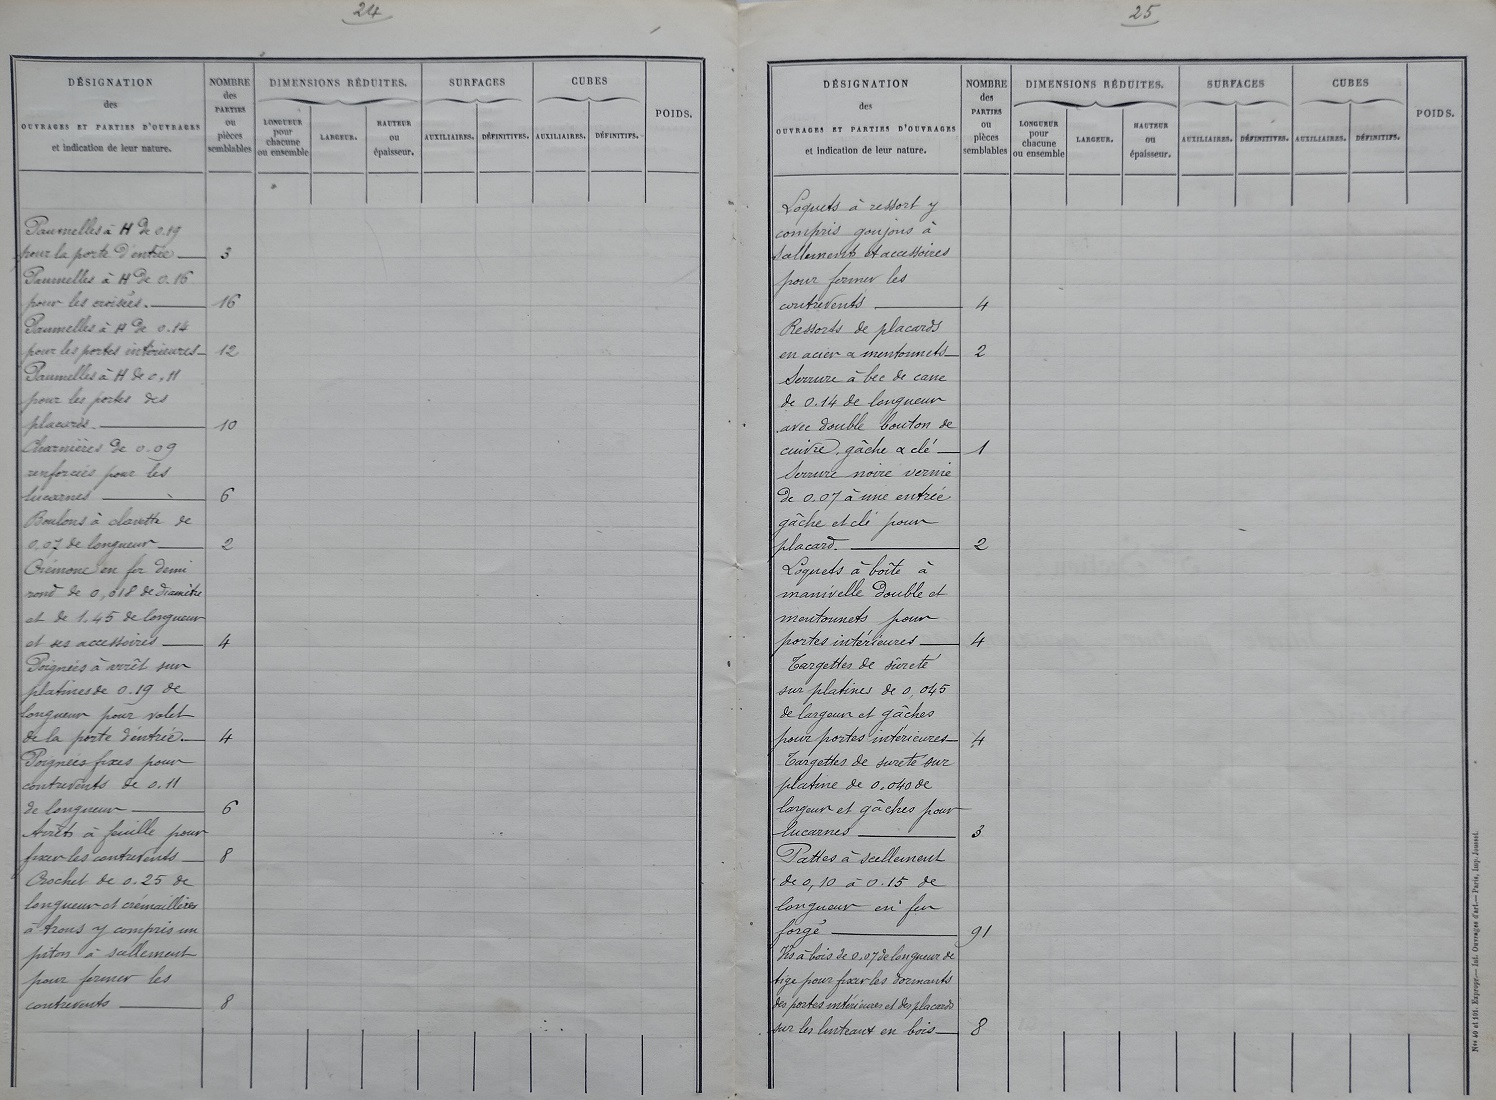 24
DÉSIGNATION
des
OUVRAGES ET PARTIES D'OUVRAGES
et indication de leur nature.
NOMBRE
des
PARTIES
ou
pièces
semblables
DIMENSIONS RÉDUITES.
LONGUEUR
pour
chacune
ou ensemble
LARGEUR.
HAUTEUR
ou
épaisseur.
SURFACES
AUXILIAIRES.
DÉFINITIVES.
CUBES
AUXILIAIRES.
DÉFINITIFS.
POIDS.
Paumelles à H de 0.19
pour la porte d'entrée 3
Paumelles à H de 0.16
pour les croisées. 16
Paumelles à H de 0.14
pour les portes intérieures 12
Paumelles à H de 0,11
pour les portes des
placards. 10
Charnières de 0.09
renforcées pour les
lucarnes 6
Boulons à clavette de
0,07 de longueur 2
Crémone en fer demi
rond de 0,018 de diamètre
et de 1.45 de longueur
et ses accessoires 4
Poignées à arrêt sur
platines de 0.19 de
longueur pour volet
de la porte d'entrée. 4
Poignées fixes pour
contrevents de 0.11
de longueur 6
Arrêts à feuille pour
fixer les contrevents 8
Crochet de 0.25 de
longueur et crémaillères
à trous y compris un
piton à scellement
pour fermer les
contrevents 8
25
DÉSIGNATION
des
OUVRAGES ET PARTIES D'OUVRAGES
et indication de leur nature.
NOMBRE
des
PARTIES
ou
pièces
semblables
DIMENSIONS RÉDUITES.
LONGUEUR
pour
chacune
ou ensemble
LARGEUR.
HAUTEUR
ou
épaisseur.
SURFACES
AUXILIAIRES.
DÉFINITIVES.
CUBES
AUXILIAIRES.
DÉFINITIFS.
POIDS.
Loquets à ressort y
compris goujons à
scellement et accessoires
pour fermer les
contrevents 4
Ressorts de placards
en acier à mentonnets 2
Serrure à bec de cane
de 0.14 de longueur
avec double bouton de
cuivre, gâche & clé 1
Serrure noire vernie
de 0.07 à une entrée
gâche et clé pour
placard. 2
Loquets à boîte à
manivelle double et
mentonnets pour
portes intérieures 4
Targettes de sûreté
sur platines de 0,045
de largeur et gâches
pour portes intérieures 4
Targettes de sureté sur
platine de 0.040 de
largeur et gâches pour
lucarnes 3
Pattes à scellement
de 0,10 à 0.15 de
longueur en fer
forgé 91
Vis à bois de 0.07 de longueur de
tige pour fixer les dormants
des portes intérieures et des placards
sur les linteaux en bois 8
Nos 40 et 101. Expropr.— Int. Ouvrages d'art.— Paris, Imp. Jousset.